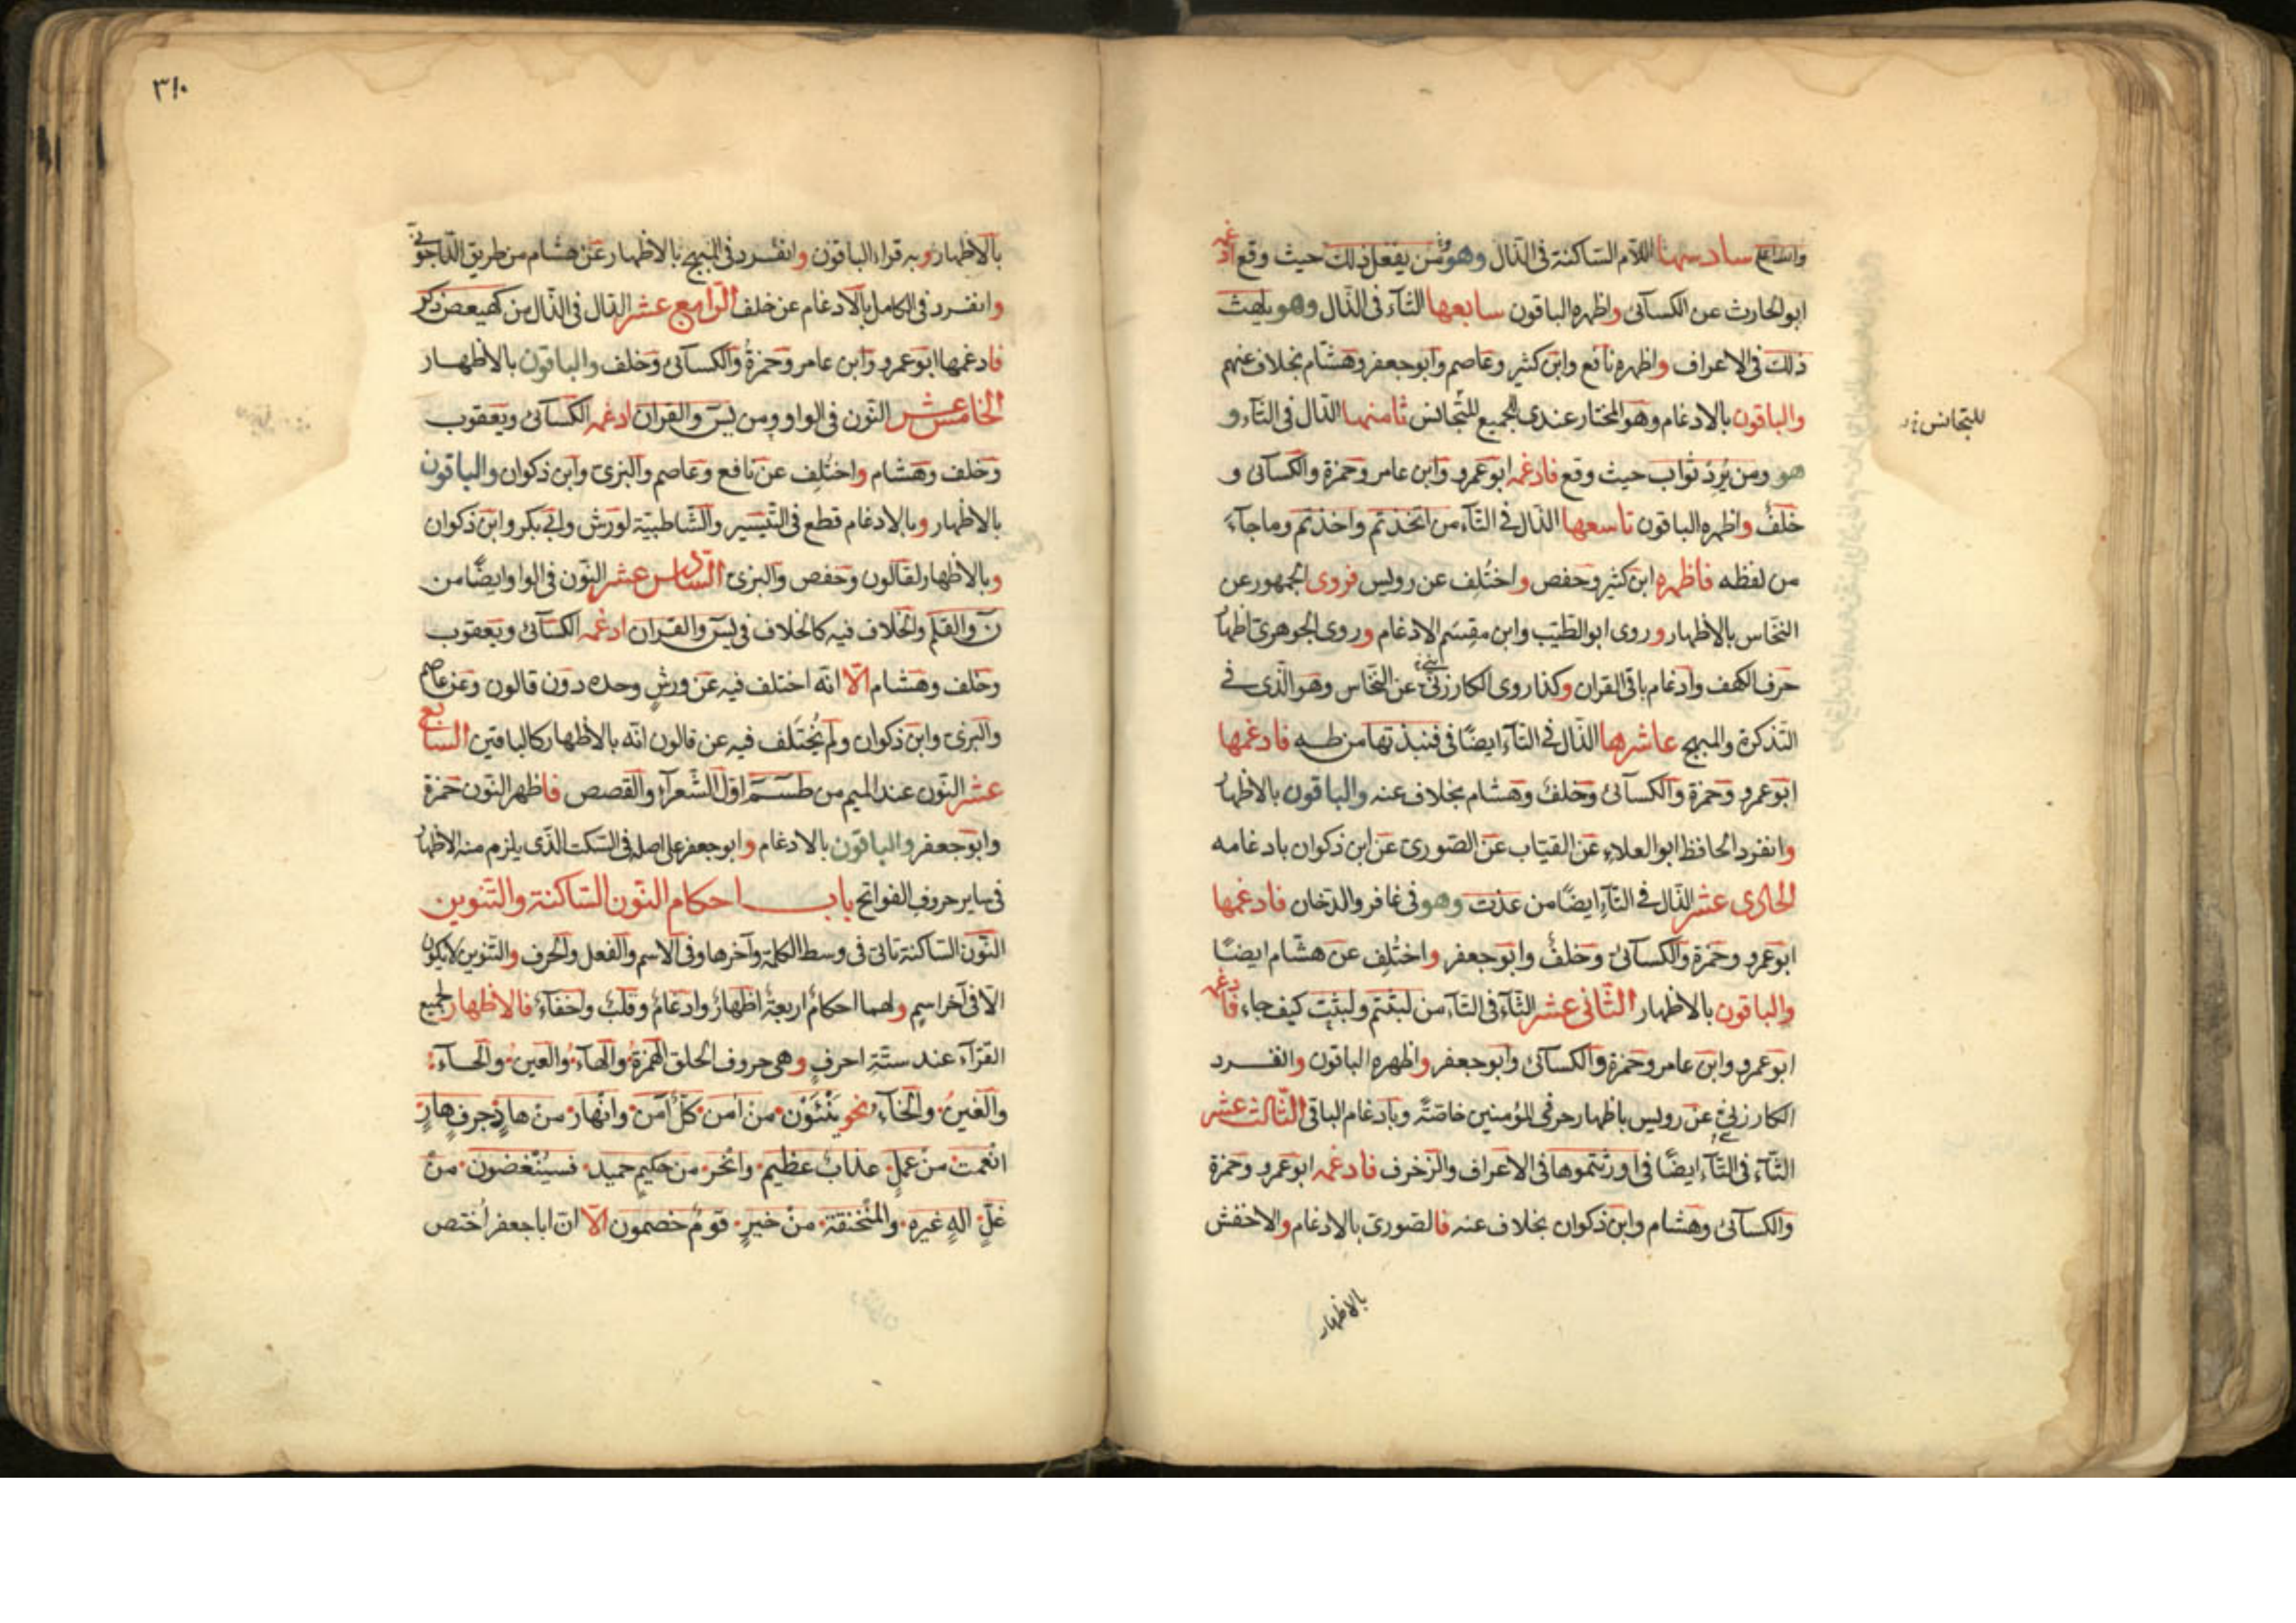 والله اعلم سادسها اللام الساكنة فى الذال وهو من يفعل ذلك حيث وقع ادغمه
ابو الحارث عن الكسائى واظهره الباقون سابعها الثاء فى الذال وهو يلهث
ذلك فى الاعراف واظهره نافع وابن كثير وعاصم وابو جعفر وهشام بخلاف عنهم
والباقون بالادغام وهو المختار عندى للجميع للتجانس ثامنها الدال فى الثاء و
للتجانس
هو ومن يُرِدْ ثواب حيث وقع فادغمه ابو عمرو وابن عامر وحمزة والكسائى و
خلفٌ واظهره الباقون تاسعها الذال فى التاء من اتخذتم واخذتم وما جاء
من لفظه فاظهره ابن كثير وحفص واختُلِف عن رويس فروى الجمهور عن
النخاس بالاظهار وروى ابو الطيّب وابن مقسَم الادغام وروى الجوهرى اظهار
حرف الكهف وادغام باقى القران وكذا روى الكارزينى عن النخاس وهو الذى فى
التذكرة والمبهج عاشرها الذال فى التاء ايضًا فى فنبذتها من طه فادغمها
ابو عمرو وحمزة والكسائى وخلف وهشام بخلاف عنه والباقون بالاظهار
وانفرد الحافظ ابو العلاء عن القباب عن الصّورى عن ابن ذكوان بادغامه
الحادى عشر الذال فى التاء ايضًا من عذت وهو فى غافر والدخان فادغمها
ابو عمرو وحمزة والكسائى وخلفٌ وابو جعفر واختُلِف عن هشام ايضًا
والباقون بالاظهار الثانى عشر الثاء فى التاء من لبثتم ولبثت كيف جاء فادغمه
ابو عمرو وابن عامر وحمزة والكسائى وابو جعفر واظهره الباقون وانفرد
الكارزينى عن رويس باظهار حرفى المؤمنين خاصّة وبادغام الباقى الثالث عشر
الثاء فى التاء ايضًا فى اورثتموها فى الاعراف والزخرف فادغمه ابو عمرو وحمزة
والكسائى وهشام وابن ذكوان بخلاف عنه فالصورى بالادغام والاخفش
بالاظهار
٣١٠
بالاظهار وبه قراء الباقون وانفرد فى المبهج بالاظهار عن هشام من طريق الداجونى
وانفرد فى الكامل بالادغام عن خلف الرابع عشر الدال فى الذال من كهيعص ذكر
فادغمها ابو عمرو وابن عامر وحمزةُ والكسائى وخلف والباقون بالاظهار
الخامس عشر النّون فى الواو ومن يس والقران ادغمه الكسائى ويعقوب
وخلف وهشام واختُلِف عن نافع وعاصم والبزى وابن ذكوان والباقون
بالاظهار وبالادغام قطع فى التيسير والشاطبيّة لورش وابى بكر وابن ذكوان
وبالاظهار لقالون وحفص والبزى السادس عشر النون فى الواو ايضًا من
ن والقلم والخلاف فيه كالخلاف فى يس والقران ادغمه الكسائى ويعقوب
وخلف وهشام الّا انّه اختلف فيه عن ورشٍ وحده دون قالون وعن عاصم
والبزى وابن ذكوان ولم يُختَلَف فيه عن قالون انّه بالاظهار كالباقين السابع
عشر النون عند الميم من طسم اوّل الشعراء والقصص فاظهر النون حمزة
وابو جعفر والباقون بالادغام وابو جعفر على اصله فى السكت الذى يلزم منه الاظهار
فى ساير حروف الفواتح باب احكام النّون الساكنة والتنوين
النّون الساكنة تاتى فى وسط الكلمة وآخرها وفى الاسم والفعل والحرف والتنوين لا يكون
الّا فى آخر اسمٍ ولهما احكامٌ اربعةٌ اظهارٌ وادغامٌ وقلبٌ واخفاءٌ فالاظهار لجميع
القرّاء عند ستّة احرفٍ وهى حروف الحلق الهمزة والهاء والعين والحاء
والغين والخاء نحو يَنْئَوْن من اٰمن كلٌّ آمن وانهار من هادٍ جرفٍ هارٍ
انعمت من عملٍ عذابٌ عظيم وانحر من حكيمٍ حميد فسيُنْغضون من
غلٍّ الهٍ غيره والمنْخنقة من خيرٍ قومٌ خصمون الّا انّ ابا جعفر اختص